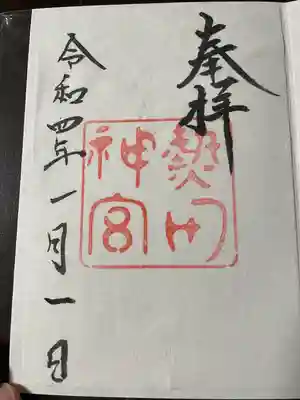 奉拝
熱田
神宮
令和四年一月一日